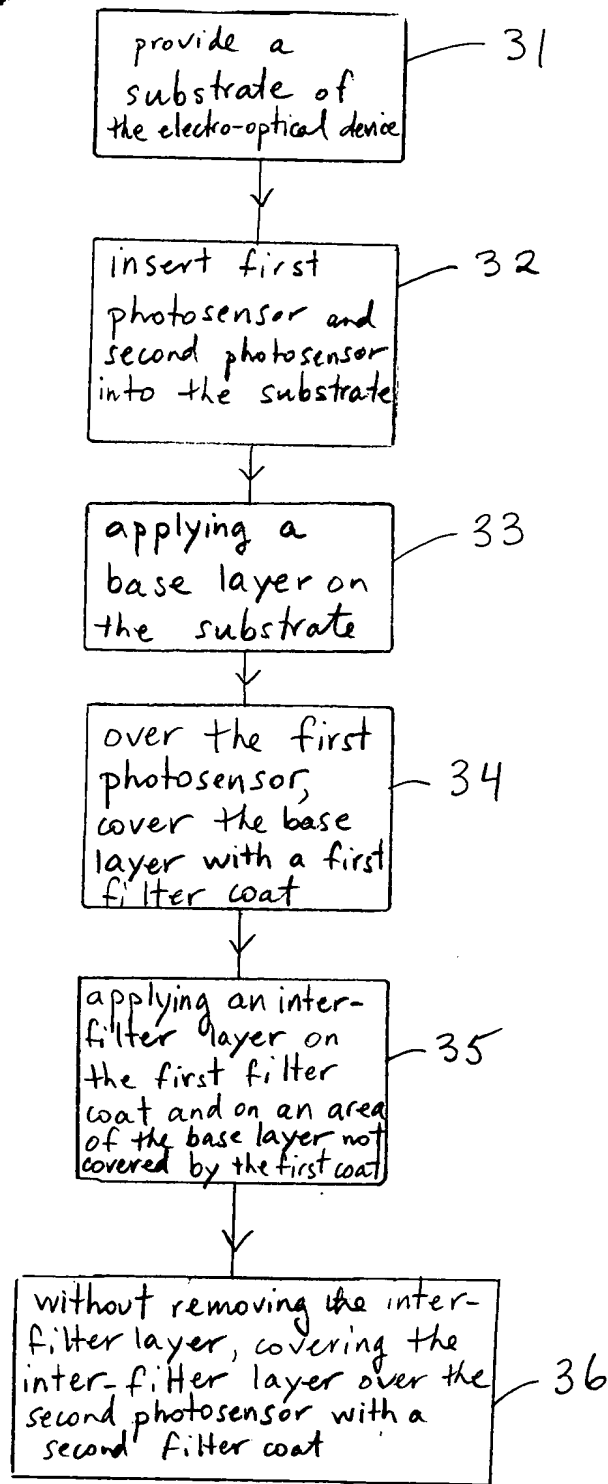 provide a
substrate of
the electro-optical device
31
insert first
photosensor and
second photosensor
into the substrate
32
applying a
base layer on
the substrate
33
over the first
photosensor,
cover the base
layer with a first
filter coat
34
applying an inter-
filter layer on
the first filter
coat and on an area
of the base layer not
covered by the first coat
35
without removing the inter-
filter layer, covering the
inter-filter layer over the
second photosensor with a
second filter coat
36